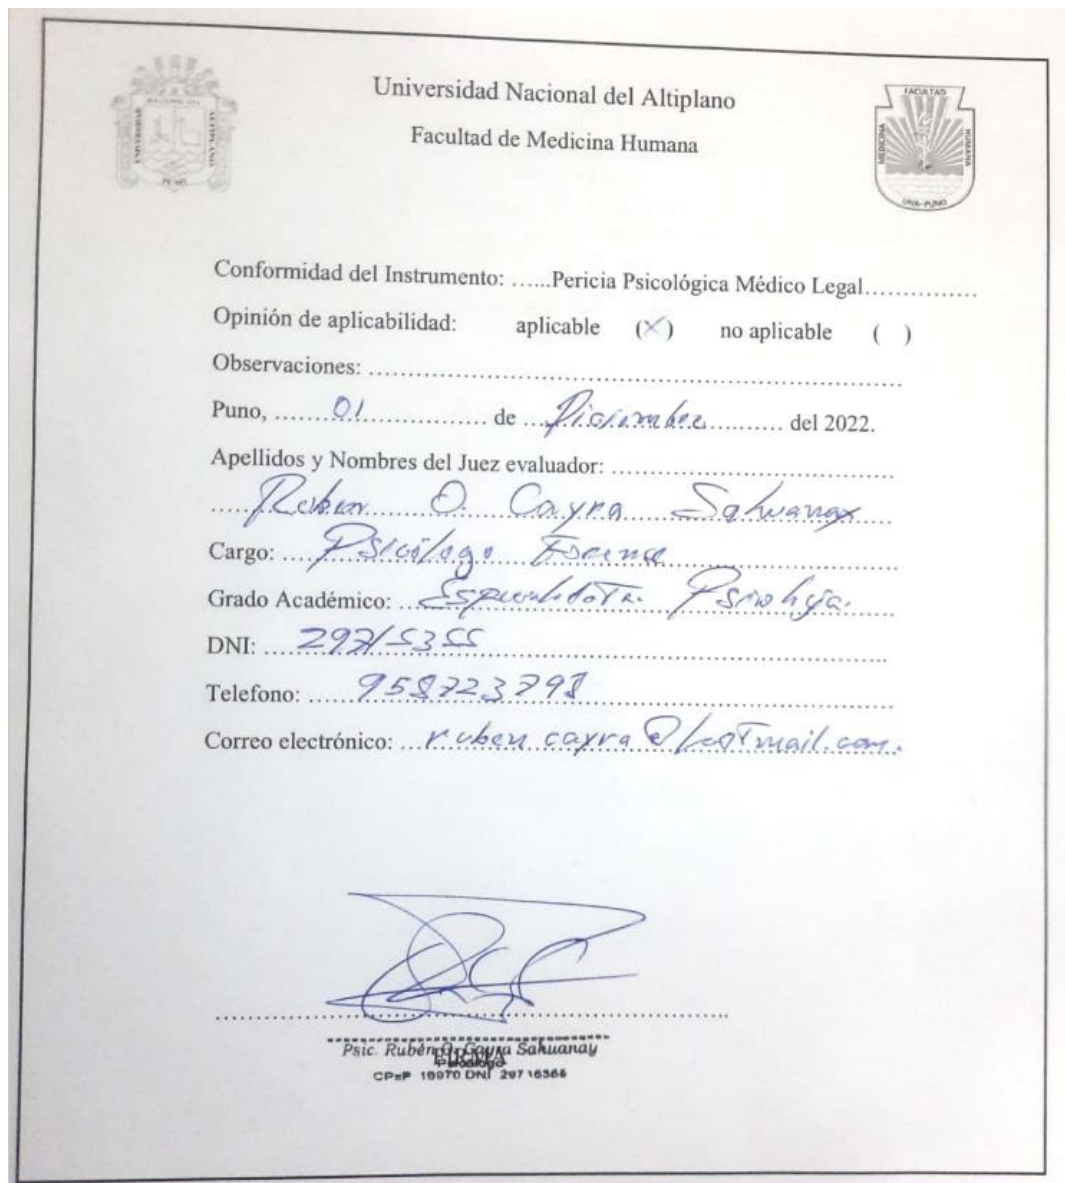 Universidad Nacional del Altiplano
Facultad de Medicina Humana
FACULTAD
MEDICINA
HUMANA
UNA-PUNO
Conformidad del Instrumento: ......Pericia Psicológica Médico Legal...............
Opinión de aplicabilidad: aplicable (X) no aplicable ( )
Observaciones: ...............................................................
Puno, ....... 01 ................ de ... Diciembre .......... del 2022.
Apellidos y Nombres del Juez evaluador: ...................................
Ruben O. Cayra Sahuanay
Cargo: Psicólogo Forense
Grado Académico: Especialista Psicología.
DNI: 29715355
Telefono: 958723798
Correo electrónico: ruben cayra @hotmail.com.
Psic. Rubén O. Cayra Sahuanay
FIRMA
Psicólogo
CPsP DNI